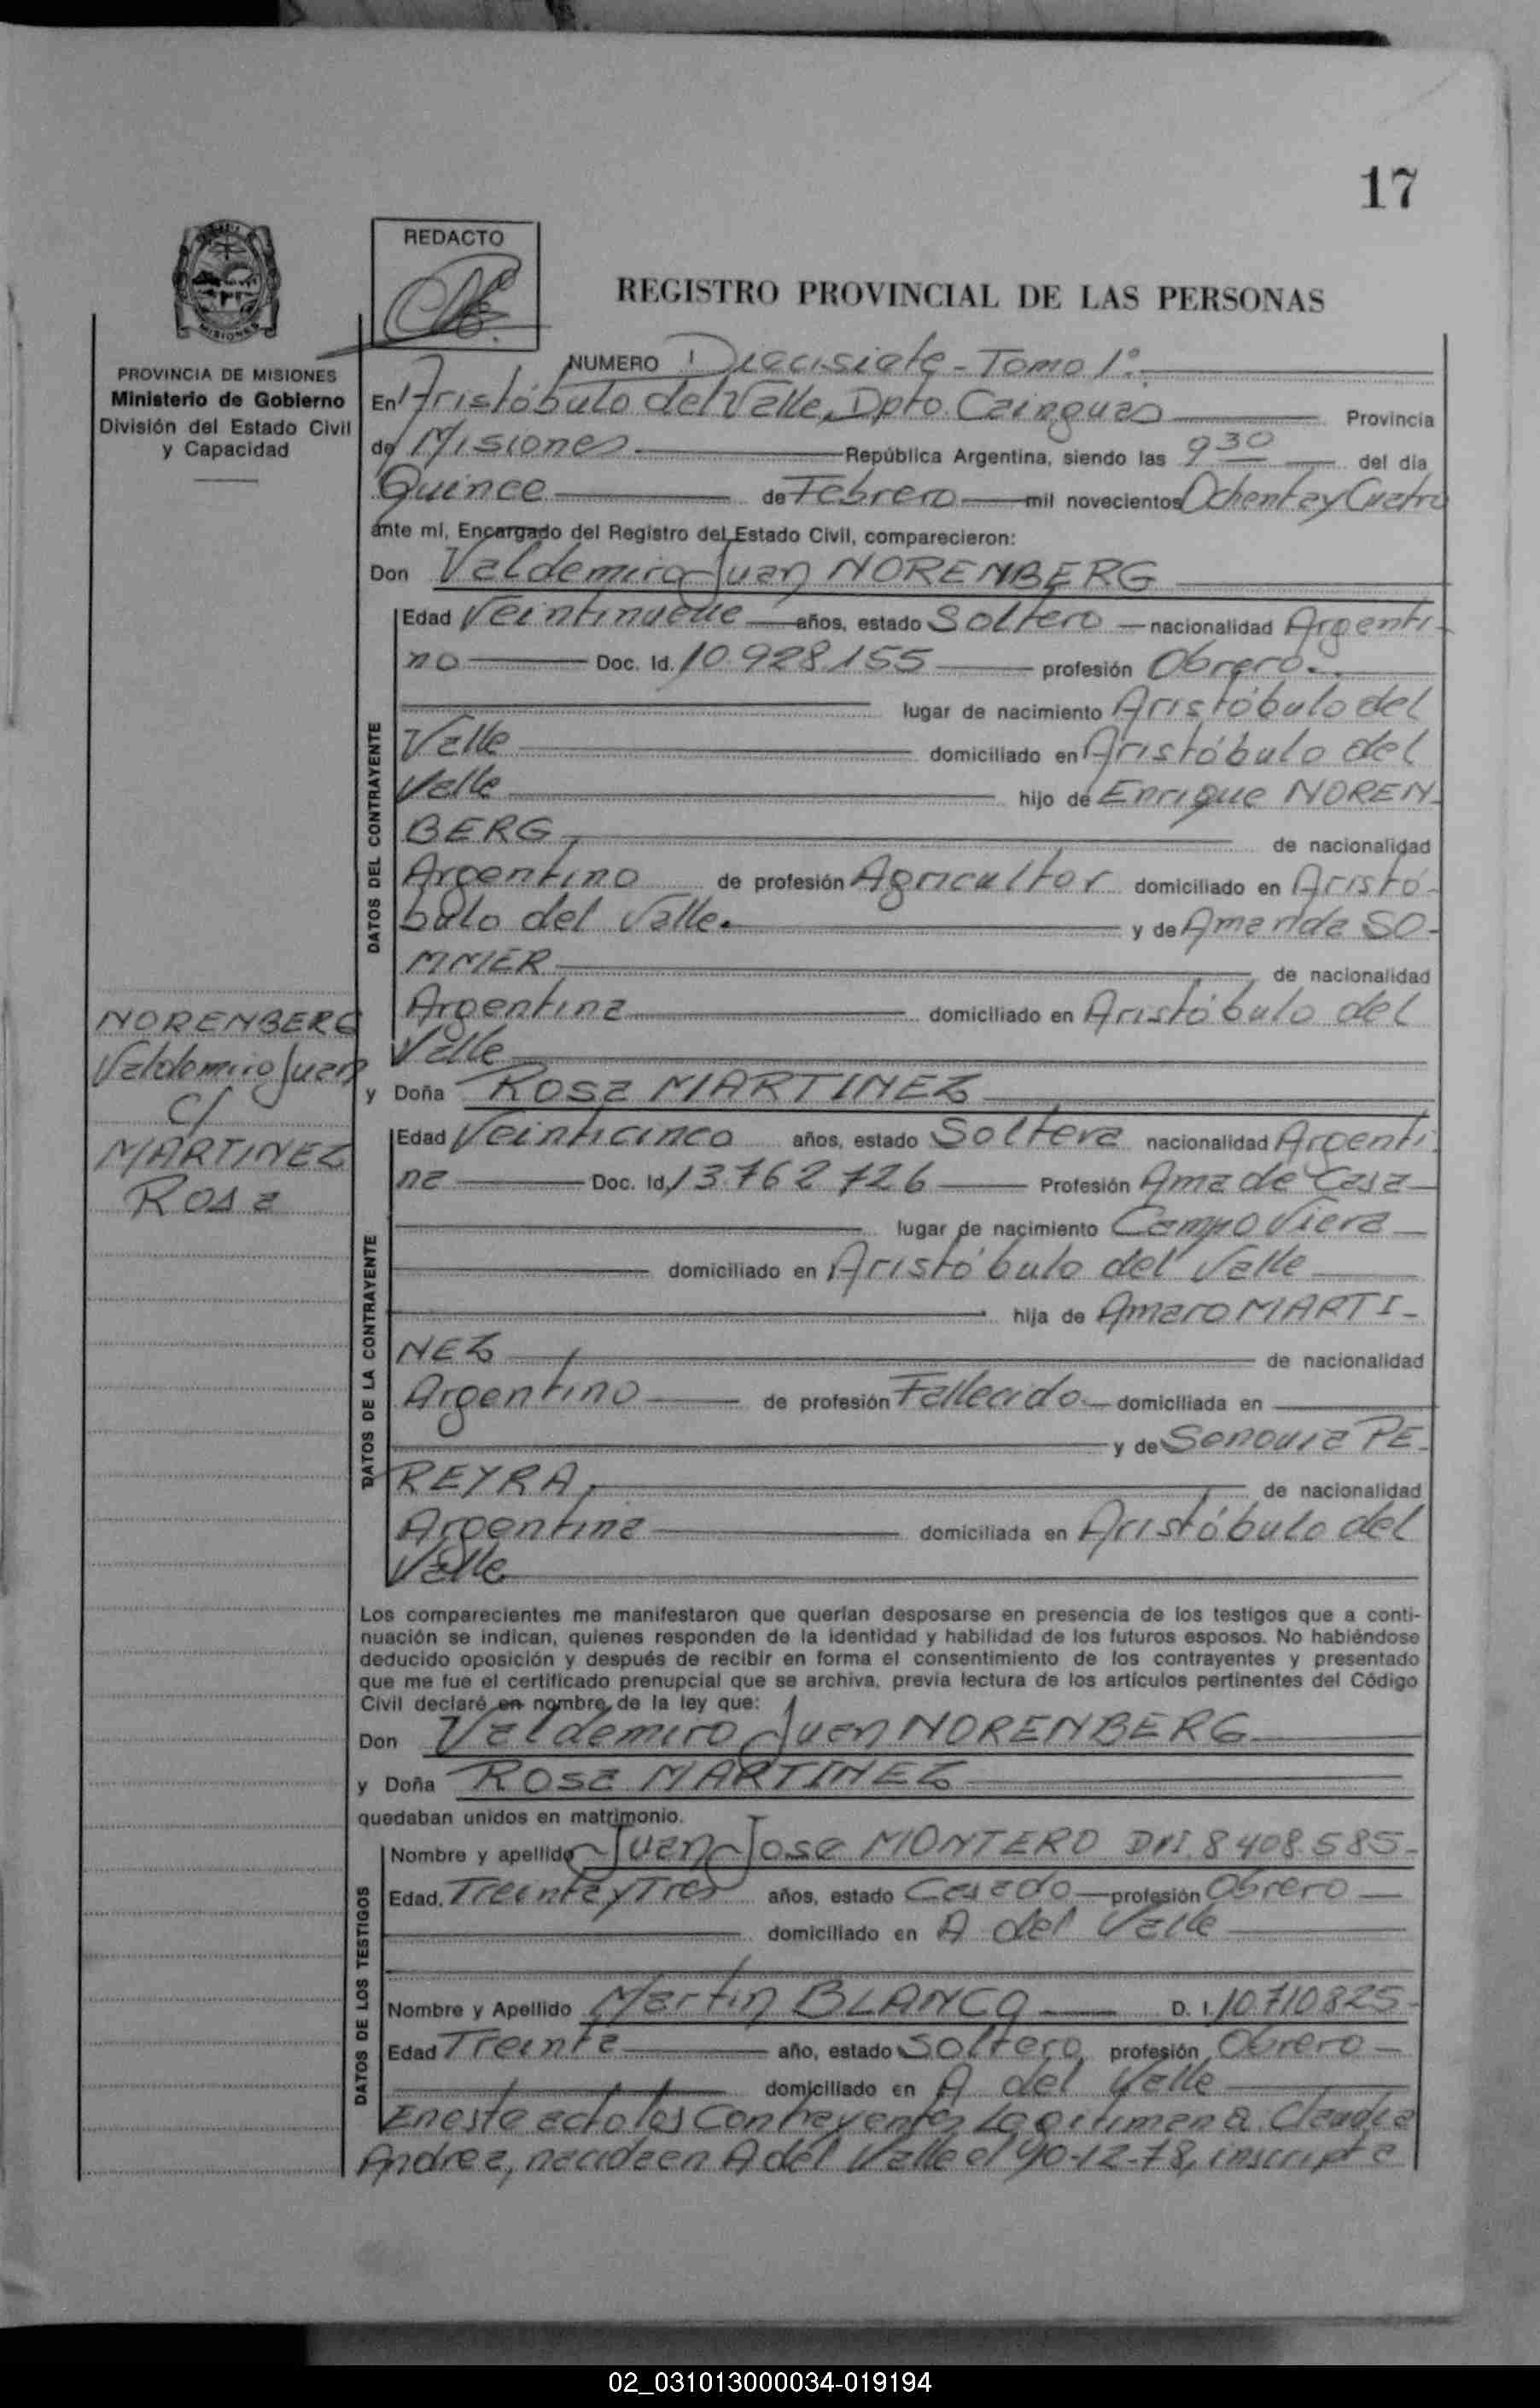 17
REDACTO
REGISTRO PROVINCIAL DE LAS PERSONAS
MISIONES
PROVINCIA DE MISIONES
Ministerio de Gobierno
División del Estado Civil
y Capacidad
NUMERO Diecisiete - Tomo 1º.
En Aristóbulo del Valle, Dpto. Cainguas Provincia
de Misiones República Argentina, siendo las 9 30 del día
Quince de Febrero mil novecientos Ochenta y Cuatro
ante mí, Encargado del Registro del Estado Civil, comparecieron:
Don Valdemiro Juan NORENBERG
DATOS DEL CONTRAYENTE
Edad Veintinueve años, estado Soltero nacionalidad Argenti-
no Doc. Id. 10.928.155 profesión Obrero.
lugar de nacimiento Aristóbulo del
Valle domiciliado en Aristóbulo del
Valle hijo de Enrique NOREN-
BERG de nacionalidad
Argentino de profesión Agricultor domiciliado en Aristó-
bulo del Valle. y de Amanda SO-
MMER de nacionalidad
Argentina domiciliado en Aristóbulo del
Valle
NORENBERG
Valdemiro Juan
C/
MARTINEZ
Rosa
y Doña ROSA MARTINEZ
DATOS DE LA CONTRAYENTE
Edad Veinticinco años, estado Soltera nacionalidad Argenti-
na Doc. Id. 13.762.726 Profesión Ama de Casa
lugar de nacimiento Campo Viera
domiciliado en Aristóbulo del Valle
hija de Amaro MARTI-
NEZ de nacionalidad
Argentino de profesión Fallecido domiciliada en
y de PE-
REYRA, de nacionalidad
Argentina domiciliada en Aristóbulo del
Valle
Los comparecientes me manifestaron que querían desposarse en presencia de los testigos que a conti-
nuación se indican, quienes responden de la identidad y habilidad de los futuros esposos. No habiéndose
deducido oposición y después de recibir en forma el consentimiento de los contrayentes y presentado
que me fue el certificado prenupcial que se archiva, previa lectura de los artículos pertinentes del Código
Civil declaré en nombre de la ley que:
Don Valdemiro Juan NORENBERG
y Doña ROSA MARTINEZ
quedaban unidos en matrimonio.
DATOS DE LOS TESTIGOS
Nombre y apellido Juan Jose MONTERO DNI. 8.408.585-
Edad, Treinta y Tres años, estado Casado profesión Obrero
domiciliado en A del Valle
Nombre y Apellido Martin BLANCO D. I. 10.710.825-
Edad Treinta año, estado Soltero profesión Obrero
domiciliado en A del Valle
En este acto los Contrayentes Legitiman a Claudia
Andrea, nacida en A del Valle el 10-12-78, inscripta
02_031013000034-019194